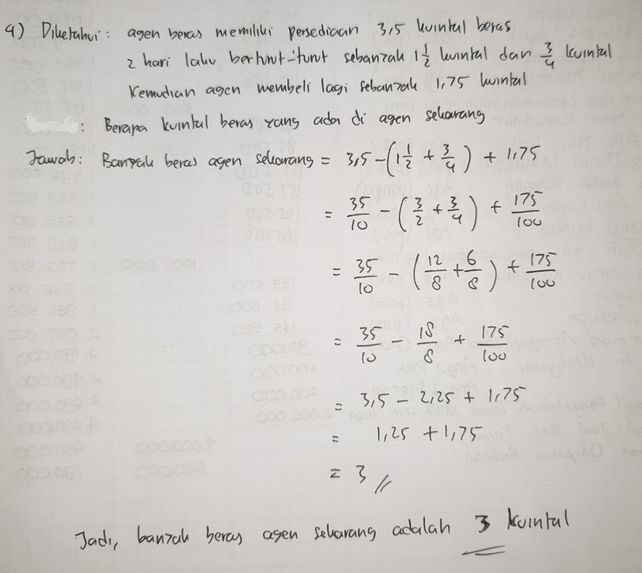 4) Diketahui : agen beras memiliki persediaan 3,5 kuintal beras
2 hari laku berturut-turut sebanyak 1 1/2 kuintal dan 3/4 kuintal
Kemudian agen membeli lagi sebanyak 1,75 kuintal
: Berapa kuintal beras yang ada di agen sekarang
Jawab : Banyak beras agen sekarang = 3,5 - (1 1/2 + 3/4) + 1,75
= 35/10 - (3/2 + 3/4) + 175/100
= 35/10 - (12/8 + 6/8) + 175/100
= 35/10 - 18/8 + 175/100
= 3,5 - 2,25 + 1,75
= 1,25 + 1,75
= 3 //
Jadi, banyak beras agen sekarang adalah 3 kuintal